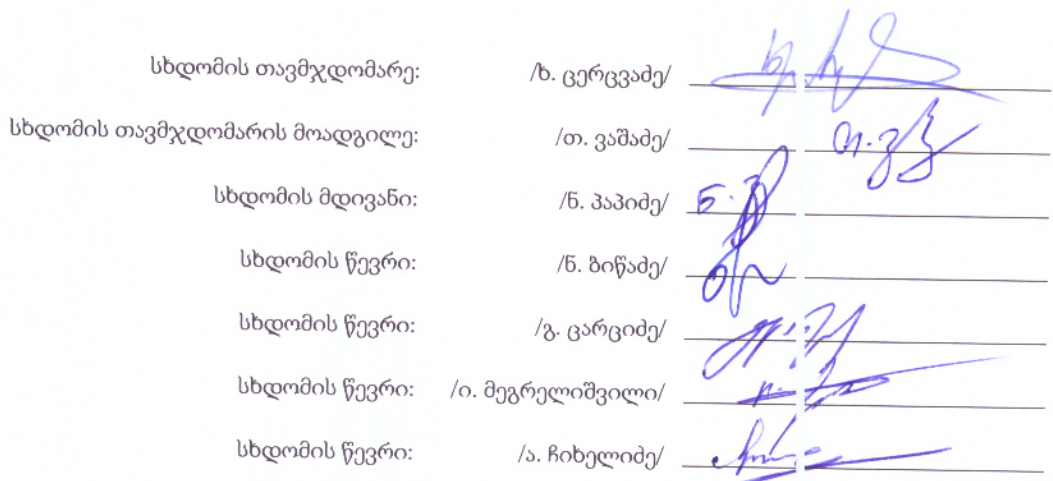 სხდომის თავმჯდომარე: /ხ. ცერცვაძე/
სხდომის თავმჯდომარის მოადგილე: /თ. ვაშაძე/ თ. ვ
სხდომის მდივანი: /ნ. პაპიძე/ ნ. პ
სხდომის წევრი: /ნ. ბიწაძე/
სხდომის წევრი: /გ. ცარციძე/
სხდომის წევრი: /ი. მეგრელიშვილი/
სხდომის წევრი: /ა. ჩიხელიძე/